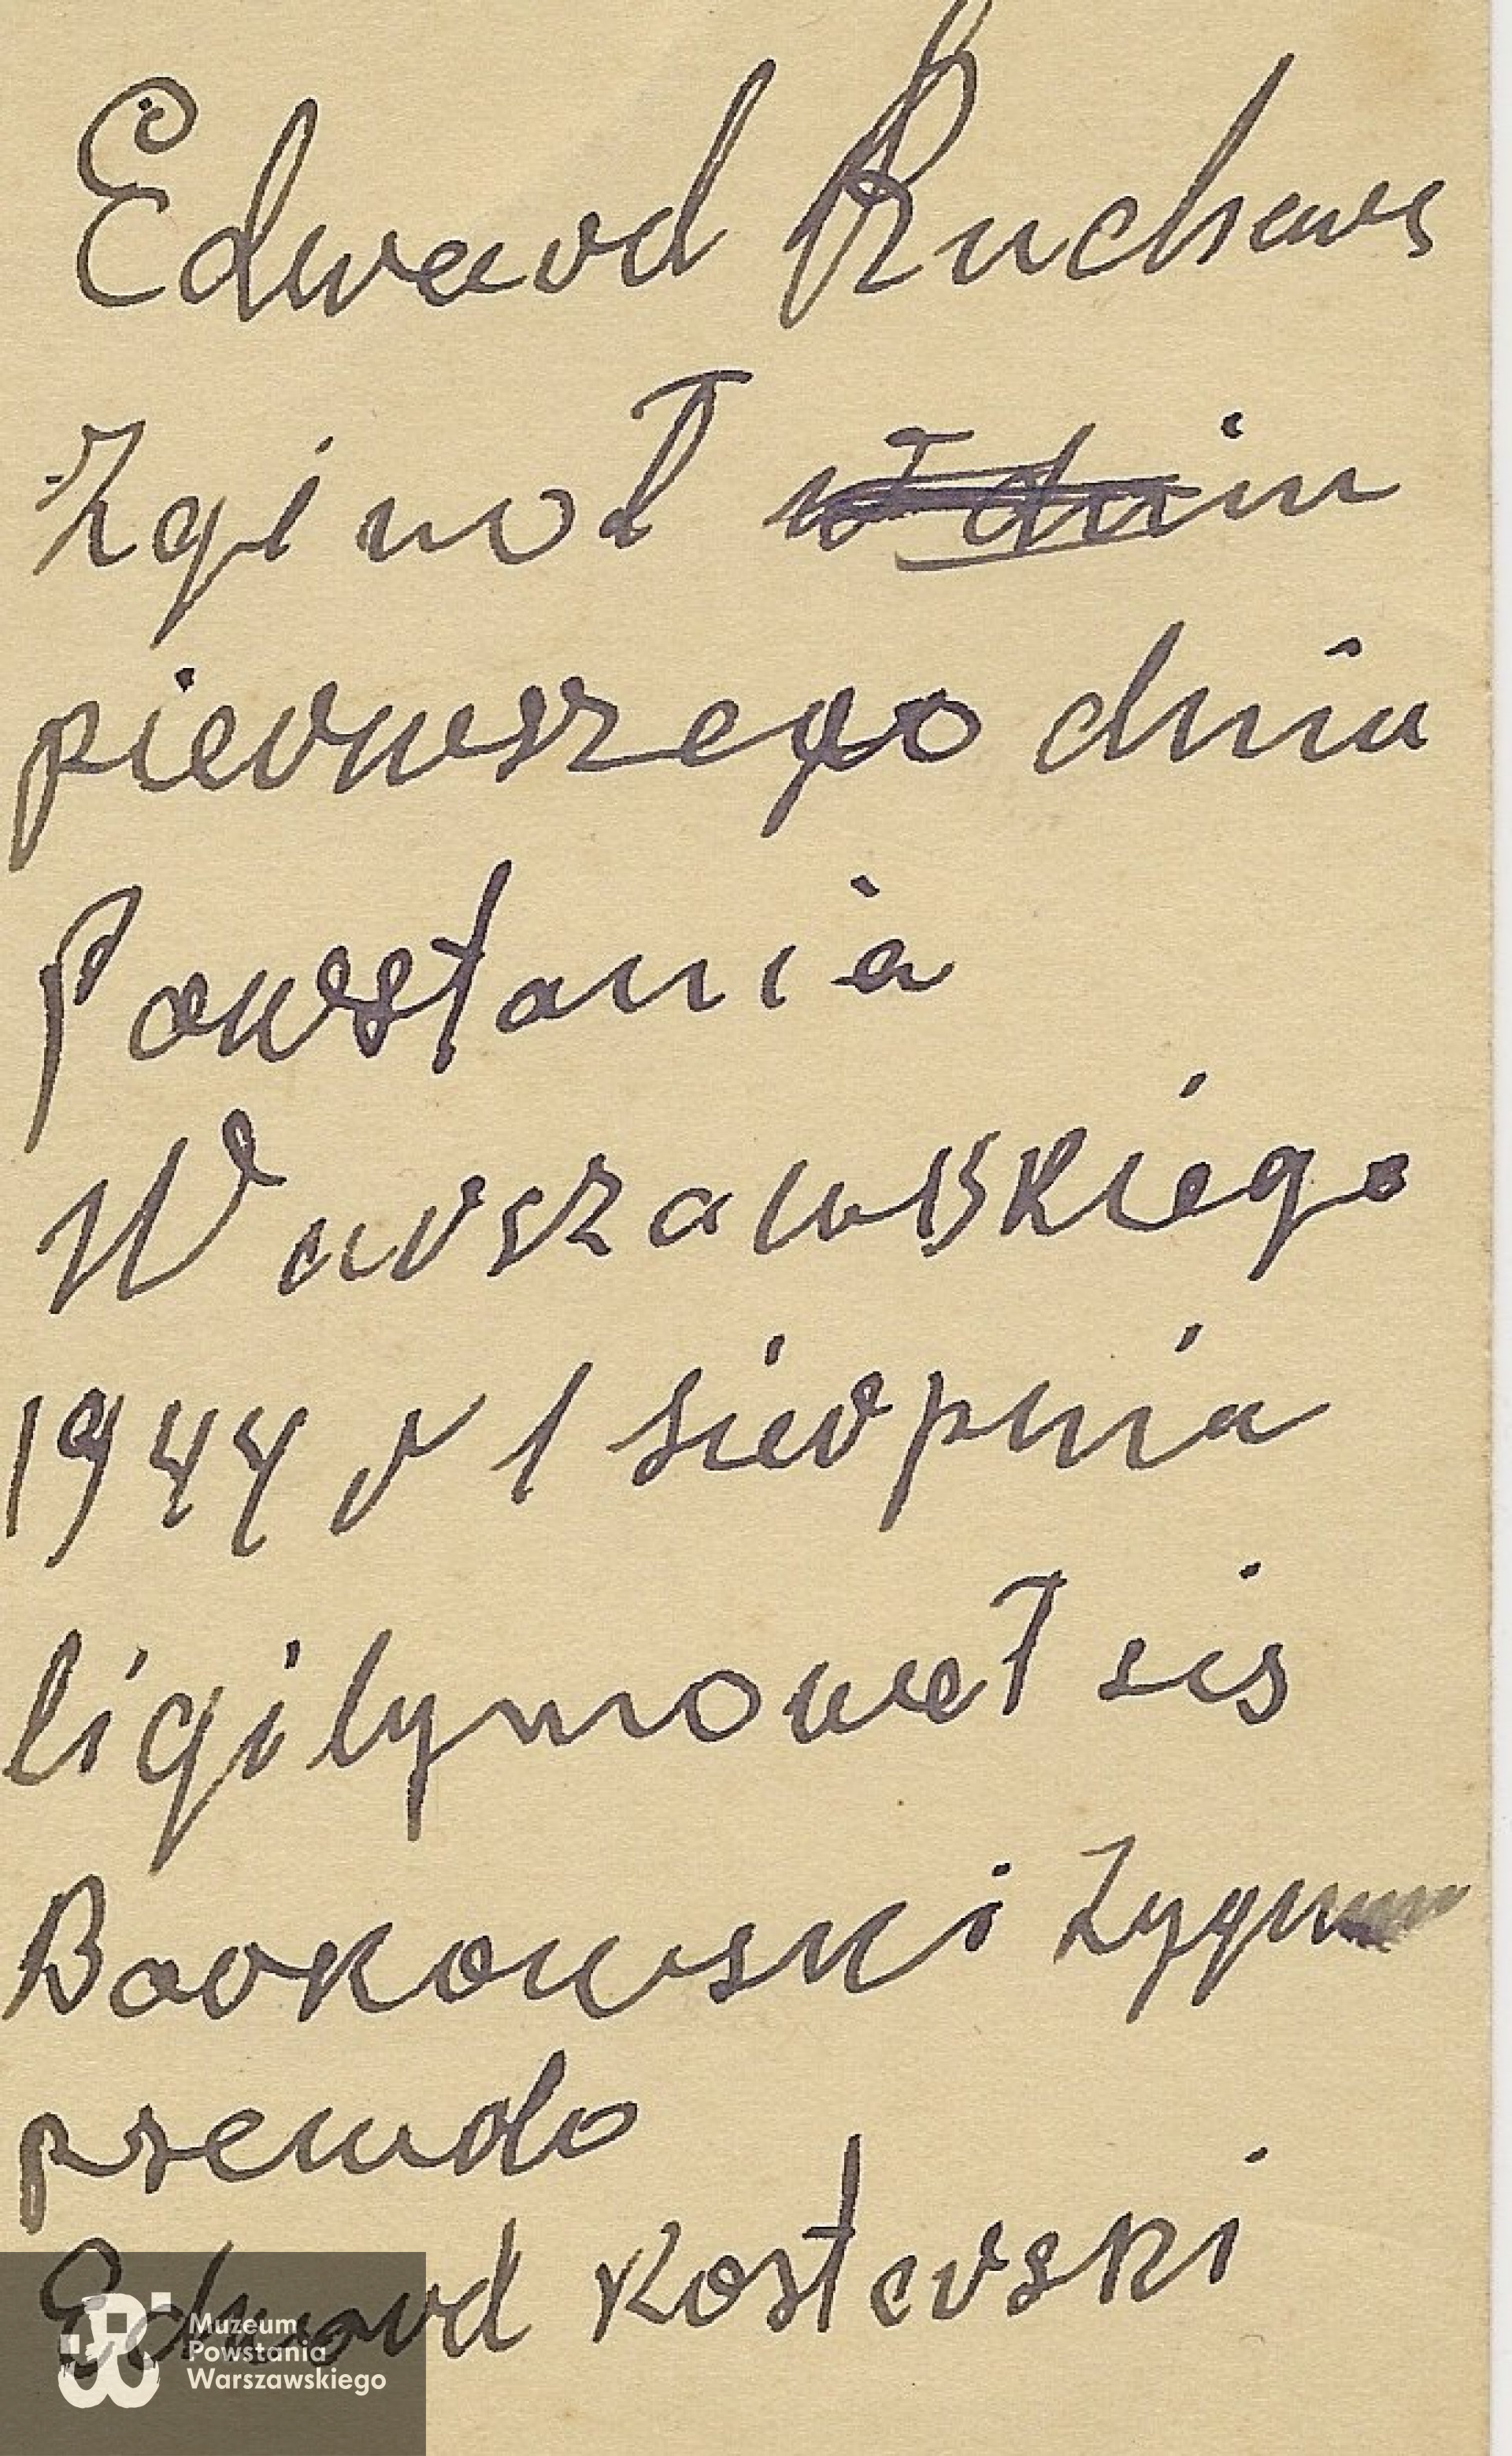 Edward Ruchaus
Zginoł w dniu
pierwszego dnia
Powstania
Warszawskiego
1944 r 1 sierpnia
ligitymował sis
Borkowski Zygmun
pseudo
Edward Kosterski
Muzeum
Powstania
Warszawskiego